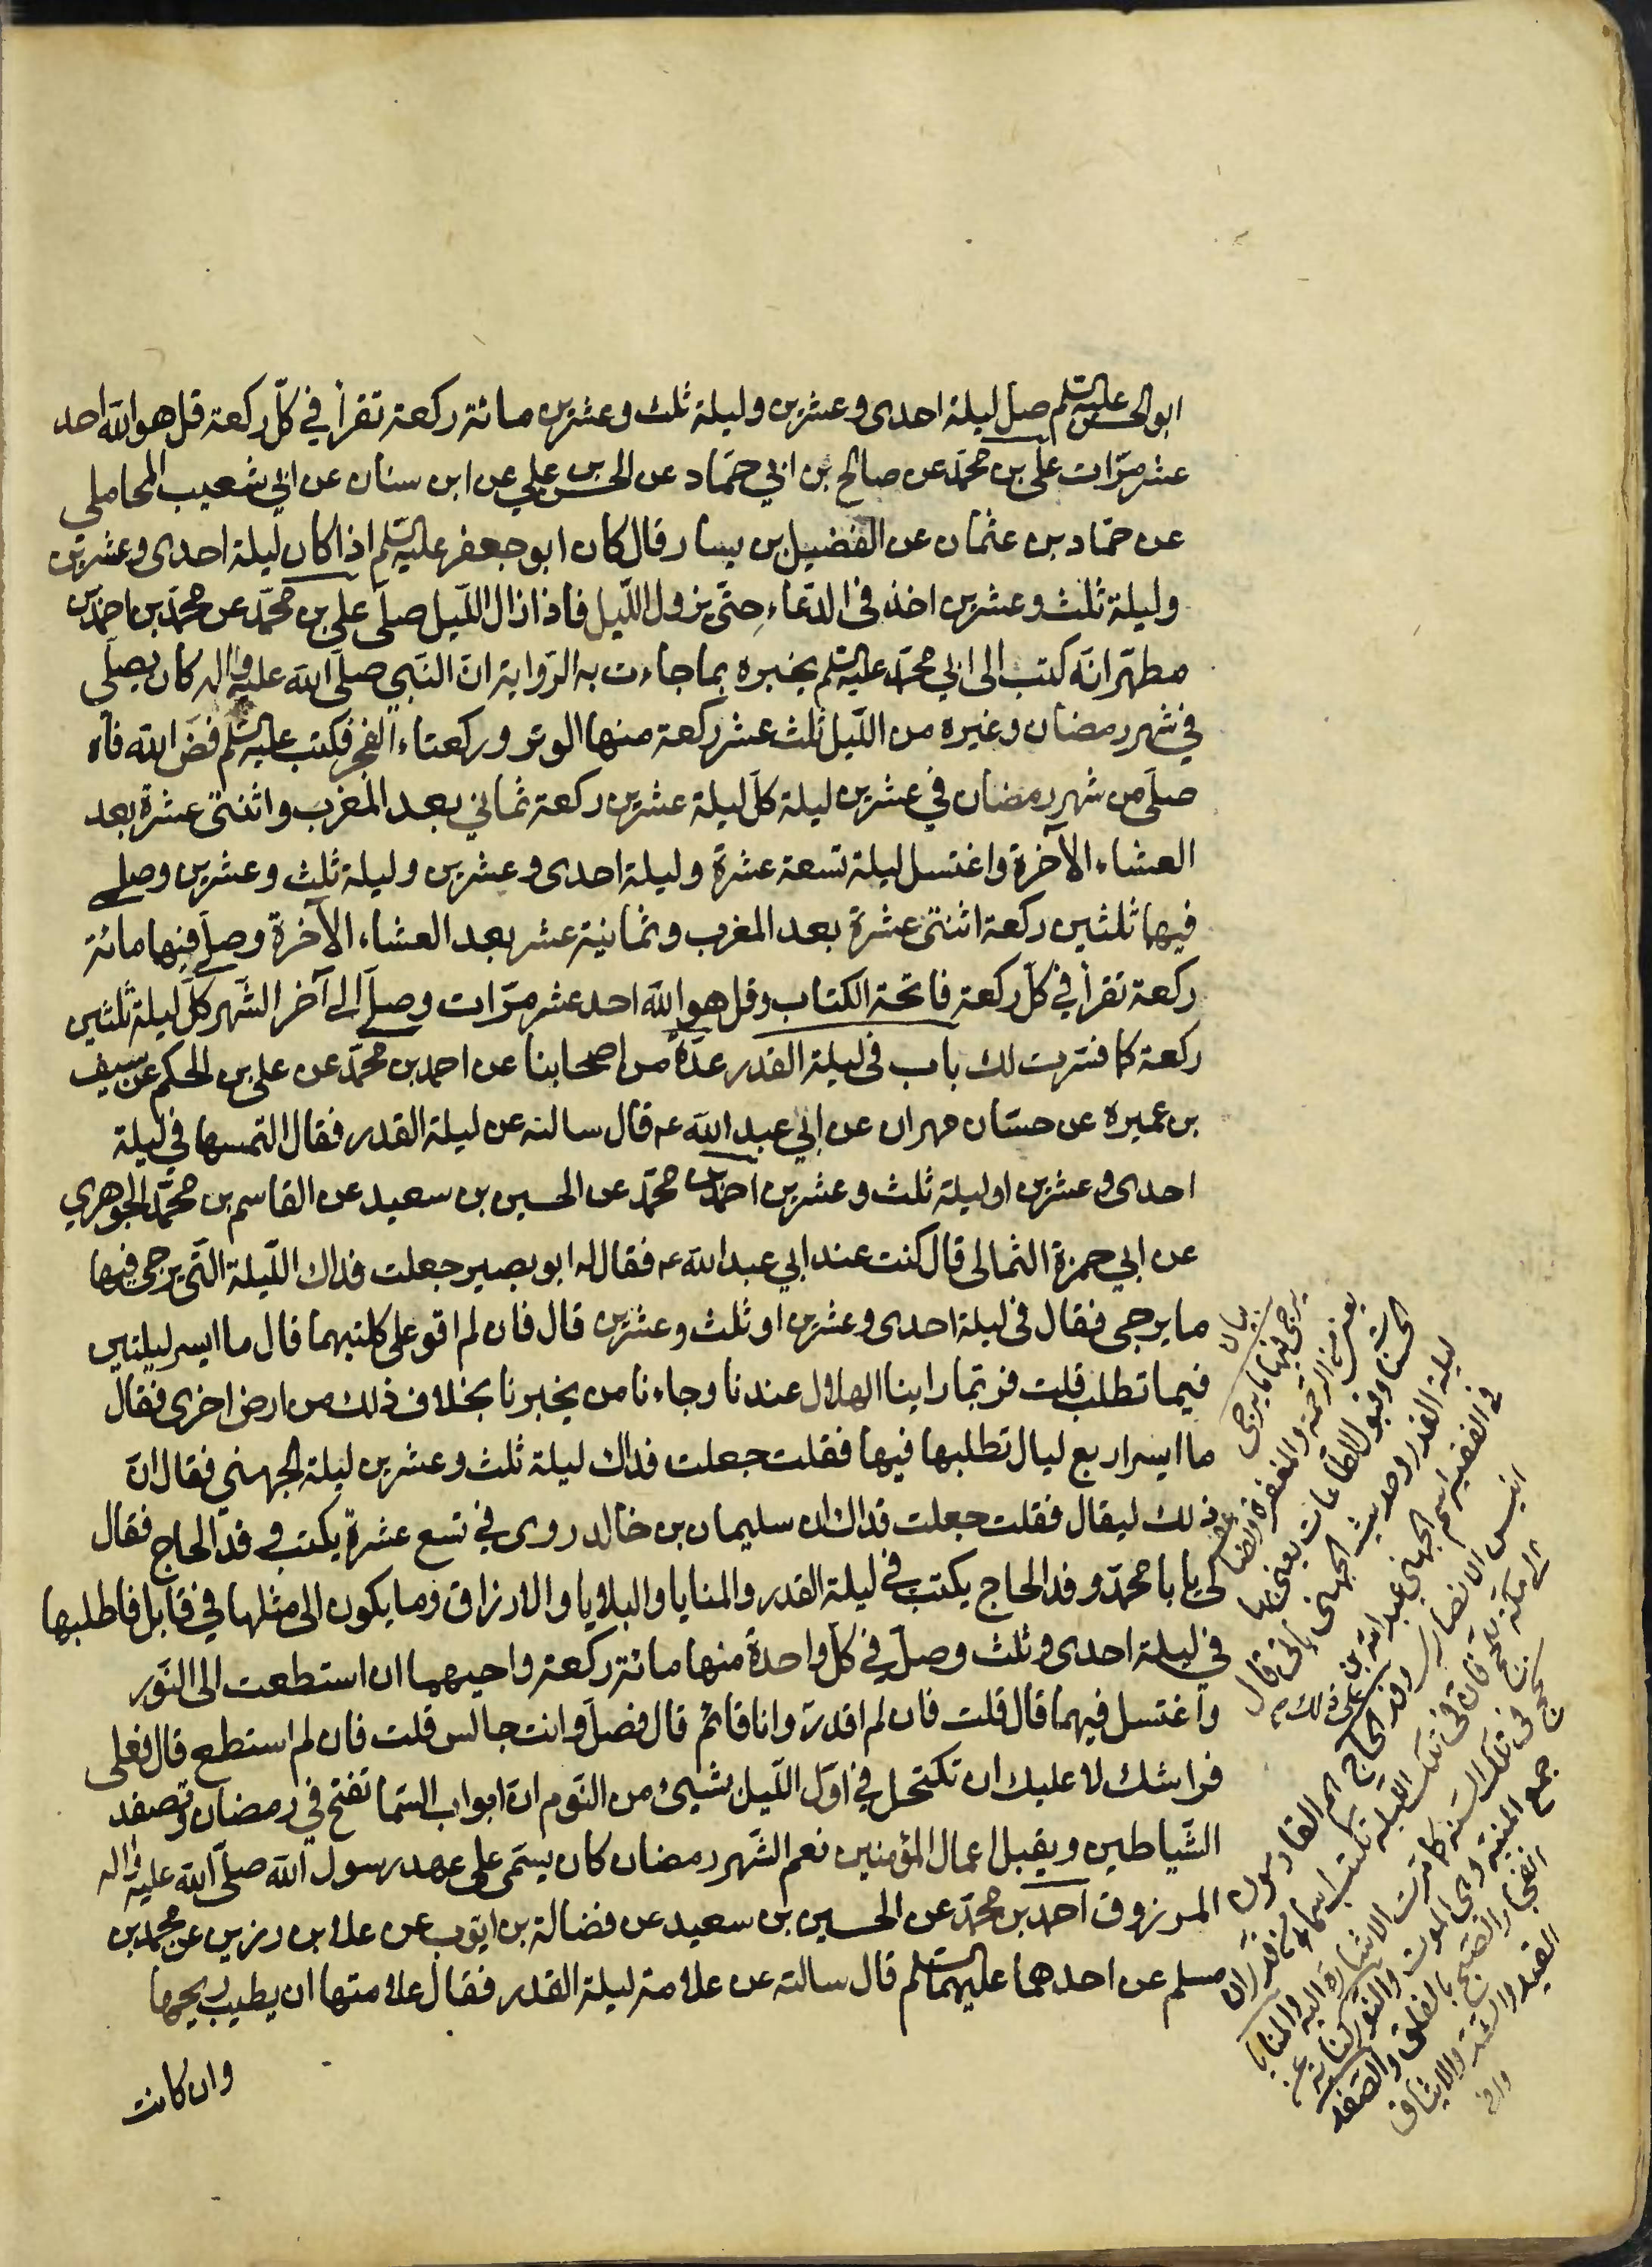 ابو الحسن عليه السلم صل ليلة احدى وعشرين وليلة ثلث وعشرين مائة ركعة تقرأ في كلّ ركعة قل هو الله احد
عشر مرّات علي بن محمّد عن صالح بن ابي حمّاد عن الحسن بن علي عن ابن سنان عن ابي شعيب المحاملي
عن حمّاد بن عثمان عن الفضيل بن يسار قال كان ابو جعفر عليه السّلم اذا كان ليلة احدى وعشرين
وليلة ثلث وعشرين اخذ في الدّعاء حتّى يزول اللّيل فاذا زال اللّيل صلّى علي بن محمّد عن محمّد بن احمد بن
مطهّر انّه كتب الى ابي محمّد عليه السلم يخبره بما جاءت به الرّواية انّ النّبي صلّى الله عليه واله كان يصلّي
في شهر رمضان وغيره من اللّيل ثلث عشر ركعة منها الوتر وركعتاء الفجر فكتب عليه السلم فضّ الله فاه
صلّى من شهر رمضان في عشرين ليلة كلّ ليلة عشرين ركعة ثماني بعد المغرب واثنتى عشرة بعد
العشاء الآخرة واغتسل ليلة تسعة عشرة وليلة احدى وعشرين وليلة ثلث وعشرين وصلى
فيها ثلثين ركعة اثنتى عشرة بعد المغرب وثمانية عشر بعد العشاء الآخرة وصلّى فيها مائة
ركعة تقرأ في كلّ ركعة فاتحة الكتاب وقل هو الله احد عشر مرّات وصلّى الى آخر الشّهر كلّ ليلة ثلثين
ركعة كما فسّرت لك باب في ليلة القدر عدّة من اصحابنا عن احمد بن محمّد عن علي بن الحكم عن سيف
بن عميرة عن حسّان مهران عن ابي عبد الله ع قال سالته عن ليلة القدر فقال التمسها في ليلة
احدى وعشرين او ليلة ثلث وعشرين احمد بن محمّد عن الحسين بن سعيد عن القاسم بن محمّد الجوهري
عن ابي حمزة الثمالى قال كنت عند ابي عبد الله ع فقال له ابو بصير جعلت فداك اللّيلة الّتي يرجى فيها
ما يرجى فقال في ليلة احدى وعشرين او ثلث وعشرين قال فان لم اقو على كلتيهما قال ما ايسر ليلتين
فيما تطلب قلت فربّما راينا الهلال عندنا وجاءنا من يخبرنا بخلاف ذلك من ارض اخرى فقال
ما ايسر اربع ليال تطلبها فيها فقلت جعلت فداك ليلة ثلث وعشرين ليلة الجهني فقال انّ
ذلك ليقال فقلت جعلت فداك ان سليمان بن خالد روى في تسع عشرة يكتب وفد الحاج فقال
لي يابا محمّد وفد الحاج يكتب في ليلة القدر والمنايا والبلايا والارزاق وما يكون الى مثلها في قابل فاطلبها
في ليلة احدى وثلث وصلّ في كلّ واحدة منها مائة ركعة واحيهما ان استطعت الى النّور
واغتسل فيهما قال قلت فان لم اقدر وانا قائم قال فصلّ وانت جالس قلت فان لم استطع قال فعلى
فراشك لا عليك ان تكتحل في اوّل اللّيل بشيئ من النّوم انّ ابواب السّما تفتح في رمضان وتصفد
الشّياطين ويقبل اعمال المؤمنين نعم الشّهر رمضان كان يسمّى على عهد رسول الله صلّى الله عليه واله
المرزوق احمد بن محمّد عن الحسين بن سعيد عن فضالة بن ايّوب عن علا بن رزين عن محمد بن
مسلم عن احدهما عليهما السلم قال سالته عن علامة ليلة القدر فقال علامتها ان يطيب ريحها
وان كانت
بيان
يرجى فيها ما يرجى
يعني من الرّحمة والمغفرة وتضاعف
الحسنات وقبول الطاعات يعني بها
ليلة القدر وحديث الجهني ياتي قال
في الفقيه اسم الجهني عبد الله بن
انيس الانصاري وفد الحاج هم القادمون
الى مكة للحج فان في تلك اللّيلة تكتب اسماء من قدّر ان
يحج في تلك السنة كما مرّت الاشارة اليه والمنايا
جمع المنيّة وهي الموت والنّور كناية عن
انفجار الصّبح بالفلق والصّفد
القيد والشّدّ والايثاق
وافي